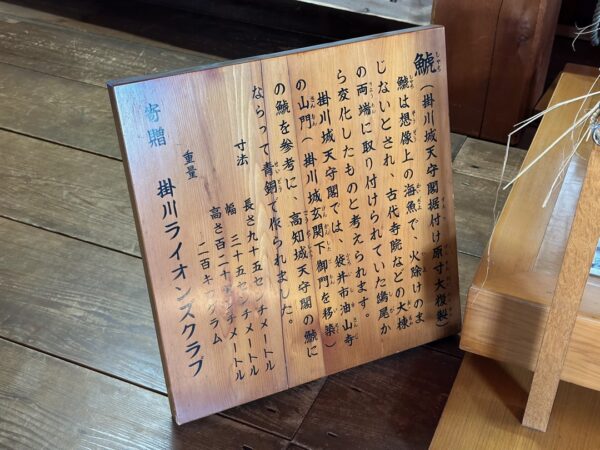 鯱(掛川城天守閣据付け原寸大複製)
鯱は想像上の海魚で、火除けのま
じないとされ、古代寺院などの大棟
の両端に取り付けられていた鴟尾か
ら変化したものと考えられます。
掛川城天守閣では、袋井市油山寺
の山門(掛川城玄関下御門を移築)
の鯱を参考に、高知城天守閣の鯱に
ならって青銅で作られました。
寸法 長さ九十五センチメートル
幅 三十五センチメートル
高さ百二十センチメートル
重量 二百キログラム
寄贈 掛川ライオンズクラブ